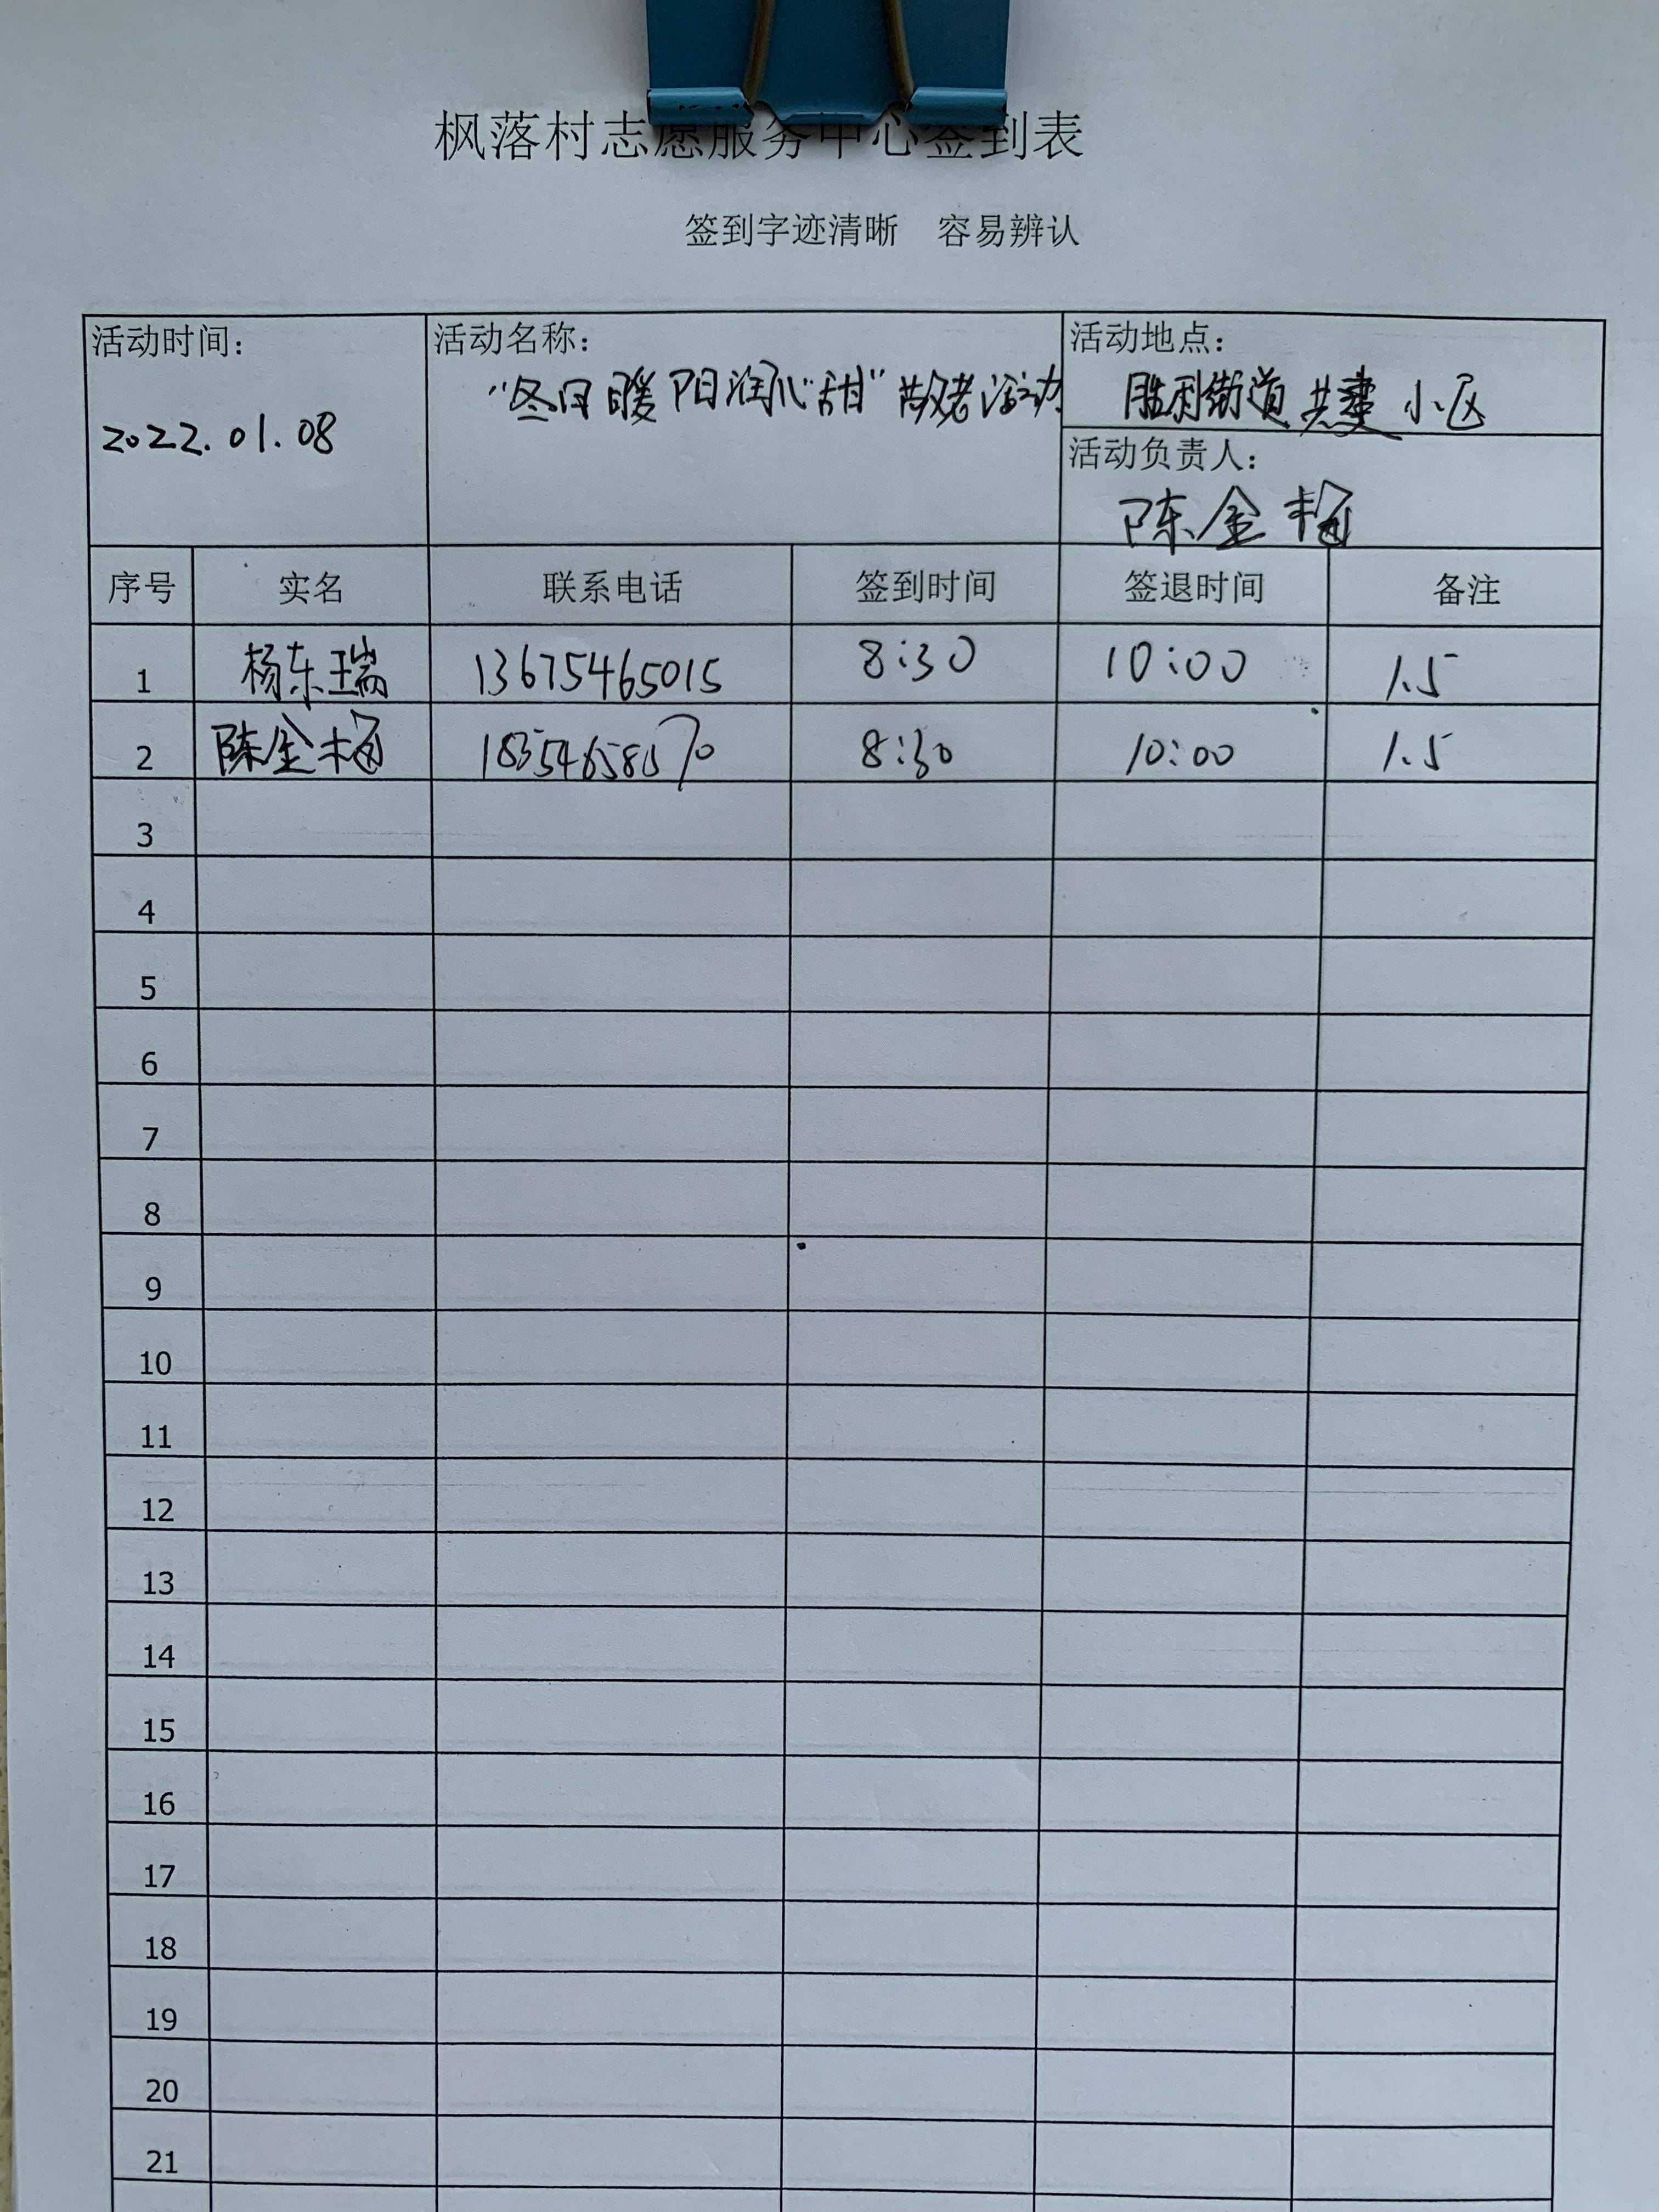 枫落村志愿服务中心签到表
签到字迹清晰 容易辨认
活动时间：
2022.01.08
活动名称：
"冬日暖阳润心甜"敬老活动
活动地点：
胜利街道共建小区
活动负责人：
陈金梅
序号 实名 联系电话 签到时间 签退时间 备注
1 杨东瑞 13675465015 8:30 10:00 1.5
2 陈金梅 8:30 10:00 1.5
3
4
5
6
7
8
9
10
11
12
13
14
15
16
17
18
19
20
21